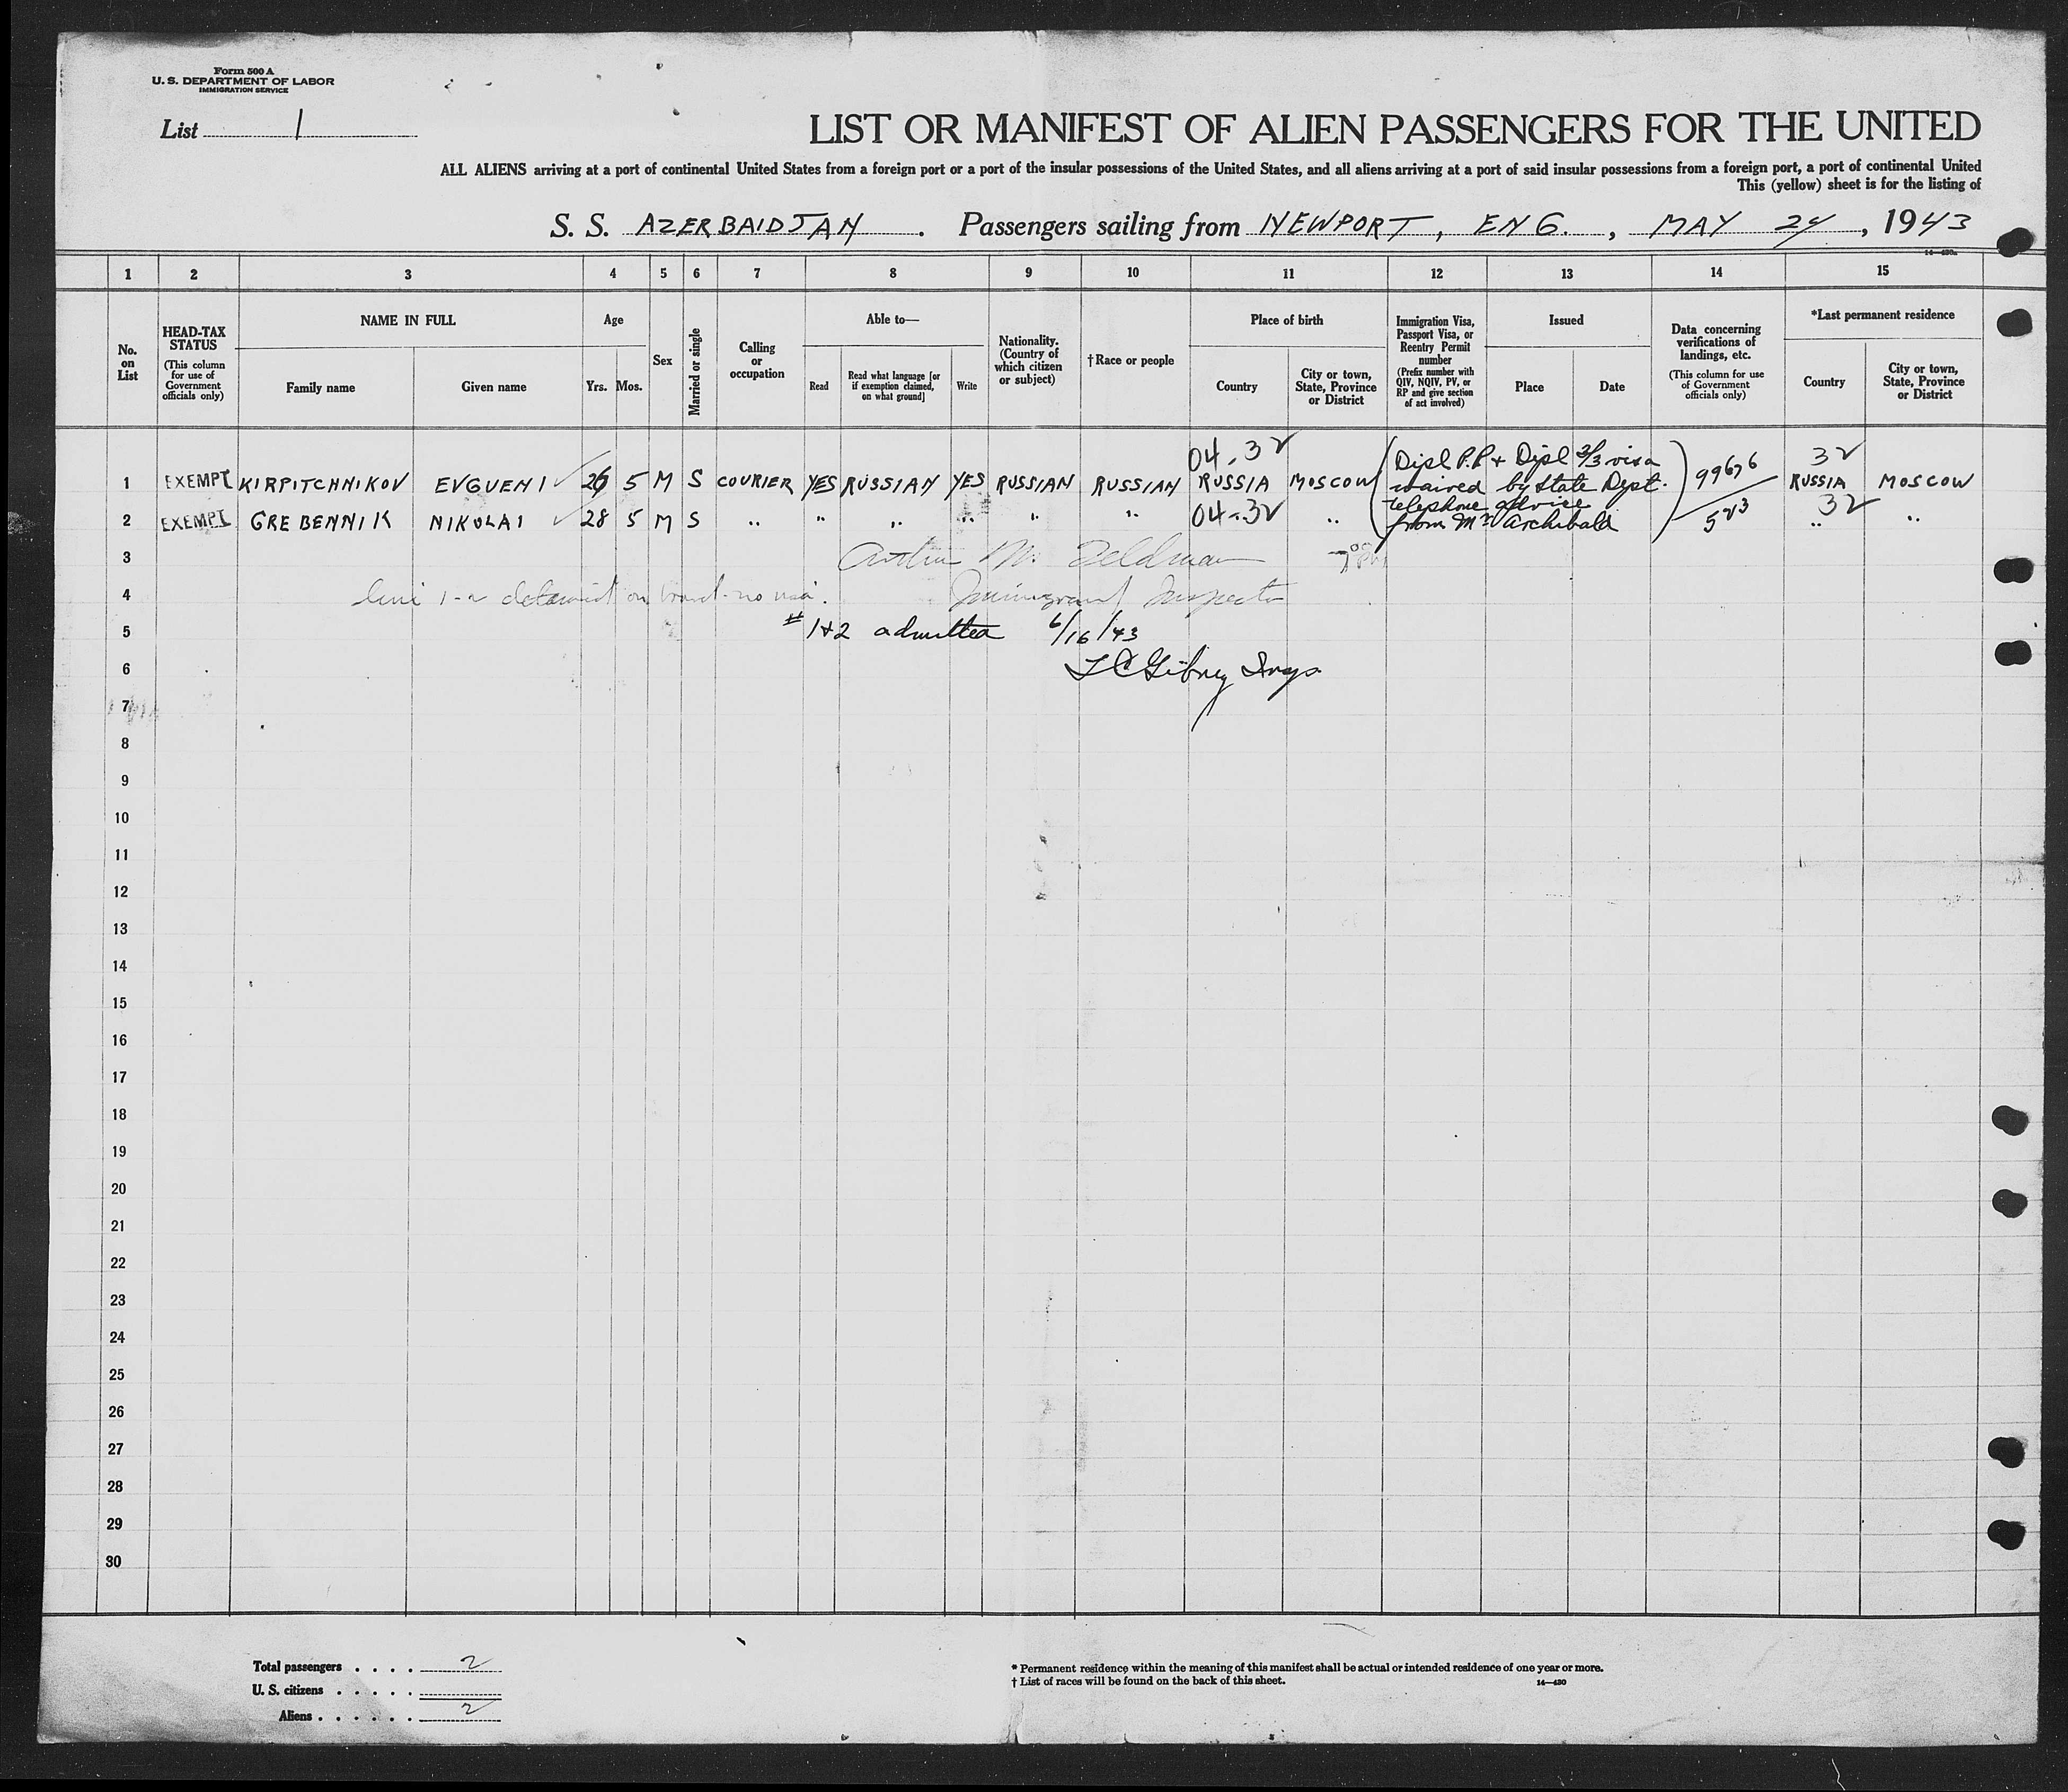 Form 500 A
U. S. DEPARTMENT OF LABOR
IMMIGRATION SERVICE
List 1
LIST OR MANIFEST OF ALIEN PASSENGERS FOR THE UNITED
ALL ALIENS arriving at a port of continental United States from a foreign port or a port of the insular possessions of the United States, and all aliens arriving at a port of said insular possessions from a foreign port, a port of continental United
This (yellow) sheet is for the listing of
S. S. AZERBAIDJAN. Passengers sailing from NEWPORT, ENG., MAY 24, 1943
1 2 3 4 5 6 7 8 9 10 11 12 13 14 15
No. on List
HEAD-TAX STATUS (This column for use of Government officials only)
NAME IN FULL
Family name Given name
Age
Yrs. Mos.
Sex
Married or single
Calling or occupation
Able to—
Read
Read what language [or if exemption claimed, on what ground]
Write
Nationality. (Country of which citizen or subject)
†Race or people
Place of birth
Country
City or town, State, Province or District
Immigration Visa, Passport Visa, or Reentry Permit number (Prefix number with QIV, NQIV, PV, or RP and give section of act involved)
Issued
Place Date
Data concerning verifications of landings, etc. (This column for use of Government officials only)
*Last permanent residence
Country
City or town, State, Province or District
04-32 32
1 EXEMPT KIRPITCHNIKOV EVGUENI 26 5 M S COURIER YES RUSSIAN YES RUSSIAN RUSSIAN RUSSIA MOSCOW RUSSIA MOSCOW
Dipl P.P + Dipl 3/3 visa
waived by State Dept.
telephone advice
from Mr Archibald
99676
523
04-32 32
2 EXEMPT GREBENNIK NIKOLAI 28 5 M S " " " " " " " " "
3 M. Feldman
4 line 1-2 detained on board - no visa. Immigrant Inspector
5 #1+2 admitted 6/16/43
6 Gibney Insp
7
8
9
10
11
12
13
14
15
16
17
18
19
20
21
22
23
24
25
26
27
28
29
30
Total passengers . . . . 2
U. S. citizens . . . . .
Aliens . . . . . . 2
* Permanent residence within the meaning of this manifest shall be actual or intended residence of one year or more.
† List of races will be found on the back of this sheet. 14—430